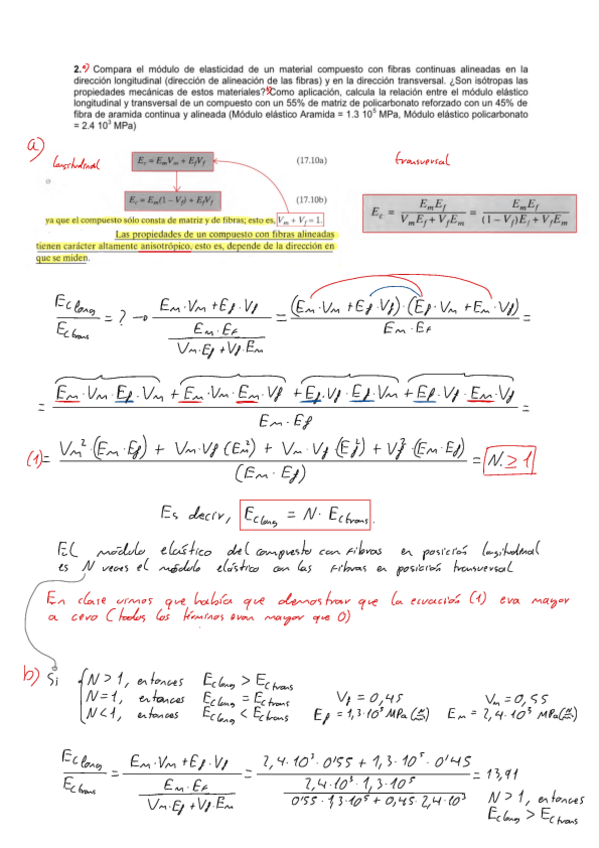 2.a) Compara el módulo de elasticidad de un material compuesto con fibras continuas alineadas en la
dirección longitudinal (dirección de alineación de las fibras) y en la dirección transversal. ¿Son isótropas las
propiedades mecánicas de estos materiales? b) Como aplicación, calcula la relación entre el módulo elástico
longitudinal y transversal de un compuesto con un 55% de matriz de policarbonato reforzado con un 45% de
fibra de aramida continua y alineada (Módulo elástico Aramida = 1.3 10⁵ MPa, Módulo elástico policarbonato
= 2.4 10³ MPa)
a)
longitudenal
E_c = E_mV_m + E_fV_f (17.10a)
transversal
E_c = E_m(1 − V_f) + E_fV_f (17.10b)
E_c = E_mE_f / (V_mE_f + V_fE_m) = E_mE_f / ((1 − V_f)E_f + V_fE_m)
ya que el compuesto sólo consta de matriz y de fibras; esto es, V_m + V_f = 1.
Las propiedades de un compuesto con fibras alineadas
tienen carácter altamente anisotrópico, esto es, depende de la dirección en
que se miden.
Ec long / Ec trans = ? → (Em·Vm + Ef·Vf) / (Em·Ef / (Vm·Ef + Vf·Em)) = (Em·Vm + Ef·Vf)·(Ef·Vm + Em·Vf) / (Em·Ef) =
= (Em·Vm·Ef·Vm + Em·Vm·Em·Vf + Ef·Vf·Ef·Vm + Ef·Vf·Em·Vf) / (Em·Ef) =
(1) = (Vm²·(Em·Ef) + Vm·Vf(Em²) + Vm·Vf(Ef²) + Vf²·(Em·Ef)) / (Em·Ef) = N ≥ 1
Es decir, Ec long = N · Ec trans.
El módulo elástico del compuesto con fibras en posición longitudenal
es N veces el módulo elástico con las fibras en posición transversal
En clase vimos que había que demostrar que la ecuación (1) era mayor
a cero (todos los términos eran mayor que 0)
b) Si { N > 1, entonces Ec long > Ec trans
N = 1, entonces Ec long = Ec trans Vf = 0,45 Vm = 0,55
N < 1, entonces Ec long < Ec trans Ef = 1,3·10⁵ MPa (N/mm²) Em = 2,4·10³ MPa (N/mm²)
Ec long / Ec trans = (Em·Vm + Ef·Vf) / (Em·Ef / (Vm·Ef + Vf·Em)) = (2,4·10³·0'55 + 1,3·10⁵·0'45) / (2,4·10³·1,3·10⁵ / (0'55·1,3·10⁵ + 0,45·2,4·10³)) = 13,91
N > 1, entonces
Ec long > Ec trans